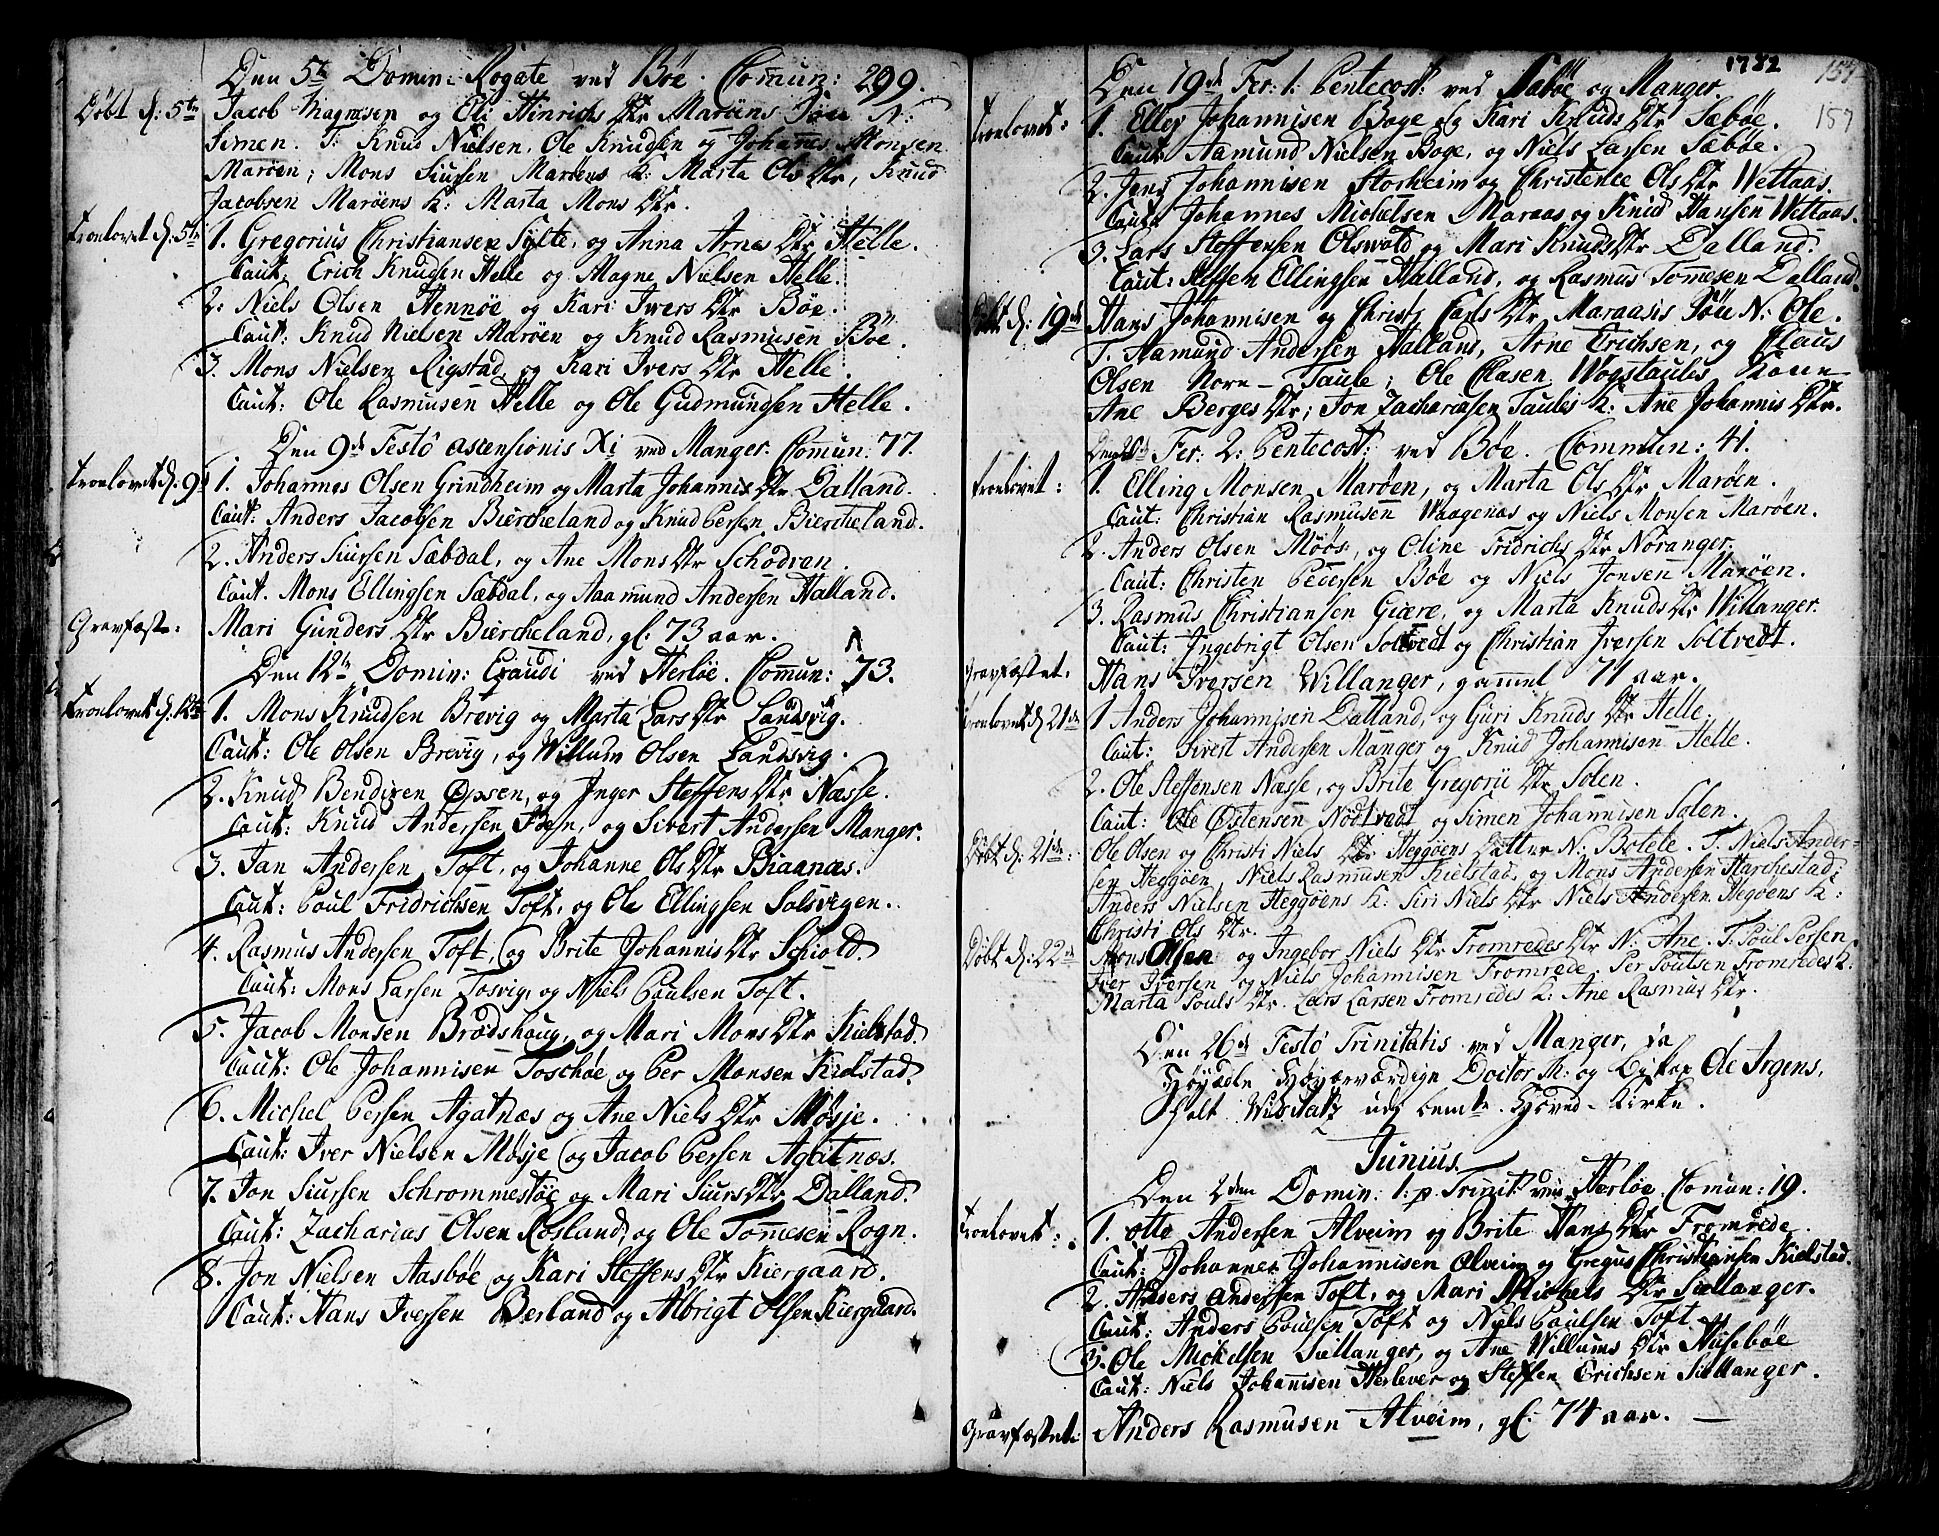 Den 5te Domin: Rogate ved Böe. Comun: 299.
Döbt d: 5te
Jacob Magnesen og Eli Hinrichs Dtr Maröens Sön N:
Simen. T: Knud Nielsen, Ole Knudsen og Johannes Monsen
Maröen; Mons Siursen Maröens K: Marta Ols Dtr, Knud
Jacobsen Maröens K: Marta Mons Dtr.
Troelovet d: 5te
1. Gregorius Christiansen Sylte, og Anna Arnes Dtr Helle.
Caut: Erich Knudsen Helle og Magne Nielsen Helle.
2. Niels Olsen Hennöe og Kari Ivers Dtr Böe.
Caut: Knud Nielsen Maröen og Knud Rasmusen Böe.
3. Mons Nielsen Rigstad, og Kari Ivers Dtr Helle.
Caut: Ole Rasmusen Helle og Ole Gudmundsen Helle.
Den 9de Festo ascensionis Xi ved Manger. Comun: 77.
Troelovet d: 9de
1. Johannes Olsen Grindheim og Marta Johannis Dtr Dalland.
Caut: Anders Jacobsen Biercheland og Knud Persen Biercheland.
2. Anders Siursen Sæbdal, og Ane Mons Dtr Schodven.
Caut. Mons Ellingsen Sæbdal, og Aamund Andersen Halland.
Gravfæste:
Mari Gunders Dtr Biercheland, gl: 73 aar.
Den 12te Domin: Exaudi ved Herlöe. Comun: 73.
Troelovet d: 12te
1. Mons Knudsen Brevig og Marta Lars Dtr Landsvig.
Caut: Ole Olsen Brevig, og Willum Olsen Landsvig.
2. Knud Bendixen Opsen, og Inger Steffens Dtr Næsse.
Caut: Knud Andersen Foesn, og Sivert Andersen Manger.
3. Jan Andersen Toft, og Johanne Ols Dtr Biaanæs.
Caut: Poul Fridrichsen Toft, og Ole Ellingsen Solsvigen.
4. Rasmus Andersen Toft, og Brite Johannis Dtr Schiold.
Caut: Mons Larsen Tosvig, og Niels Poulsen Toft.
5. Jacob Monsen Brædshoug, og Mari Mons Dtr Kielstad.
Caut: Ole Johannisen Toschöe og Per Monsen Kielstad.
6. Michel Persen Agatnæs og Ane Niels Dtr Mösje.
Caut: Iver Nielsen Mösje og Jacob Persen Agatnæs.
7. Jon Siursen Schrommestöe og Mari Siurs Dtr Dalland.
Caut: Zacharias Olsen Rosland, og Ole Tomesen Rogn.
8. Jon Nielsen Aasböe og Kari Steffens Dtr Kiergaard.
Caut: Hans Iversen Berland og Albrigt Olsen Kiergaard.
1782
157
157
Den 19de Fer: 1. Pentecost: ved Sæböe og Manger
Troelovet:
1. Ellef Johannisen Boge og Kari Knuds Dtr Sæböe.
Caut: Aamund Nielsen Boge, og Niels Larsen Sæböe.
2. Jens Johannisen Storheim og Christence Ols Dtr Wettaas.
Caut: Johannes Michelsen Maraas og Knud Hansen Wettaas.
3. Lars Steffensen Olsvold og Mari Knuds Dtr Dalland.
Caut: Steffen Ellingsen Halland, og Rasmus Tomesen Dalland.
Döbt d: 19de
Hans Johannisen og Christi Carls Dtr Maraasis Sön N: Ole.
T. Aamund Andersen Hallans, Arne Erichsen, og Claus
Olsen Norn- Taule; Ole Clasen Wogstaules Kone
Ane Berges Dtr; Jon Zachariasen Taules K: Ane Johannis Dtr.
Den 20de Fer: 2: Pentecost: ved Böe. Commun: 41.
Troelovet:
1. Elling Monsen Maröen, og Marta Ols Dtr Maröen.
Caut: Christian Rasmusen Waagenæs og Niels Monsen Maröen.
2. Anders Olsen Möös, og Oline Fridrichs Dtr Noranger.
Caut: Christen Pedersen Böe og Niels Jonsen Maröen.
3. Rasmus Christiansen Giære, og Marta Knuds Dtr Willanger.
Caut: Ingebrigt Olsen Soltvedt og Christian Iversen Soltvedt.
Gravfæstet:
Hans Iversen Willanger, gammel 71 aar.
Troelovet d 21de
1 Anders Johannisen Dalland, og Guri Knuds Dtr Helle.
Caut: Sivert Andersen Manger og Knud Johannisen Helle.
2. Ole Steffensen Næsse, og Brite Gregorii Dtr Solen.
Caut: Ole Östensen Nödtvedt og Simen Johannisen Solen.
Döbt d: 21de:
Ole Olsen og Christi Niels Dtr Heggöens Datter N: Botele. T. Niels Ander-
sen Heggöen, Niels Rasmusen Kielstad, og Mons Andersen Harchestad;
Anders Nielsen Heggöens K: Siri Niels Dtr Niels Andersen Hegöens K:
Christi Ols Dtr.
Döbt d: 22de
Mons Olsen og Ingebor Niels Dtr Fromredes Dtr N: Ane. T: Poul Persen
Iver Iversen og Niels Johannisen Fromrede. Per Poulsen Fromredes K:
Marta Pouls Dtr. Lars Larsen Fromredes K: Ane Rasmus Dtr.
Den 26de Festo Trinitatis ved Manger, da
Höyædle Höyærværdige Doctor Th: og Biskop Ole Irgens,
holt Visitatz udj bemte Hoved-Kirke.
Junius.
Den 2den Domin: 1. p. Trinit: ved Herlöe. Comun: 19.
Troelovet:
1. Otto Andersen Alveim og Brite Hans Dtr Fromrede.
Caut: Johannes Johannisen Olveim og Gregus Christiansen Kielstad.
2. Anders Andersen Toft, og Mari Michels Dtr Sællanger.
Caut: Anders Poulsen Toft og Niels Poulsen Toft.
3. Ole Mickelsen Sællanger, og Ane Willums Dtr Husebøe
Caut: Niels Johannisen Herlever og Steffen Erichsen Sællanger.
Gravfæstet:
Anders Rasmusen Alveim, gl: 74 aar. —